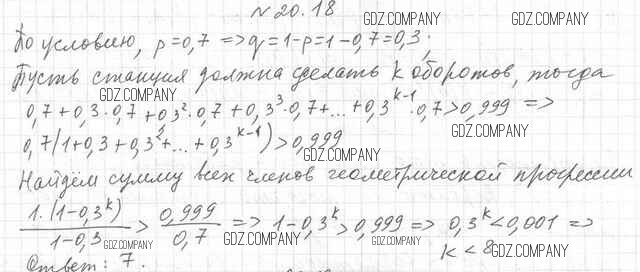 №20.18
По условию, p=0,7 => q=1-p=1-0,7=0,3;
GDZ.COMPANY
Пусть станция должна сделать k оборотов, тогда
GDZ.COMPANY
0,7+0,3·0,7+0,3²·0,7+0,3³·0,7+...+0,3^(k-1)·0,7>0,999 =>
GDZ.COMPANY
GDZ.COMPANY
0,7(1+0,3+0,3²+...+0,3^(k-1))>0,999
GDZ.COMPANY
GDZ.COMPANY
Найдём сумму всех членов геометрической прогрессии
GDZ.COMPANY
1·(1-0,3^k)/(1-0,3) > 0,999/0,7 => 1-0,3^k>0,999 => 0,3^k<0,001 =>
GDZ.COMPANY
GDZ.COMPANY
GDZ.COMPANY
k<8
GDZ.COMPANY
Ответ: 7.